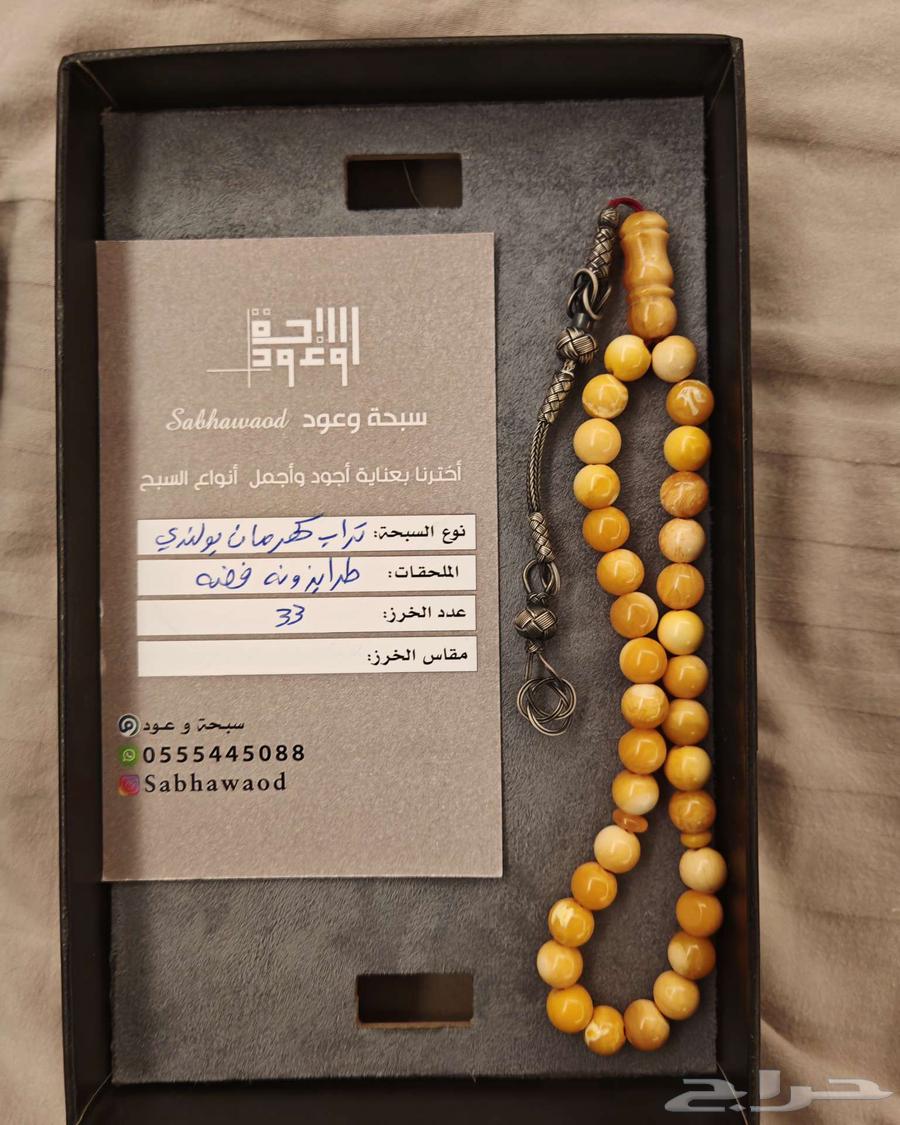 سبحة وعود Sabhawaod
أخترنا بعناية أجود وأجمل أنواع السبح
نوع السبحة: تراب كهرمان بولندي
الملحقات: طرابزونه فضه
عدد الخرز: 33
مقاس الخرز:
سبحة و عود
0555445088
Sabhawaod
حراج